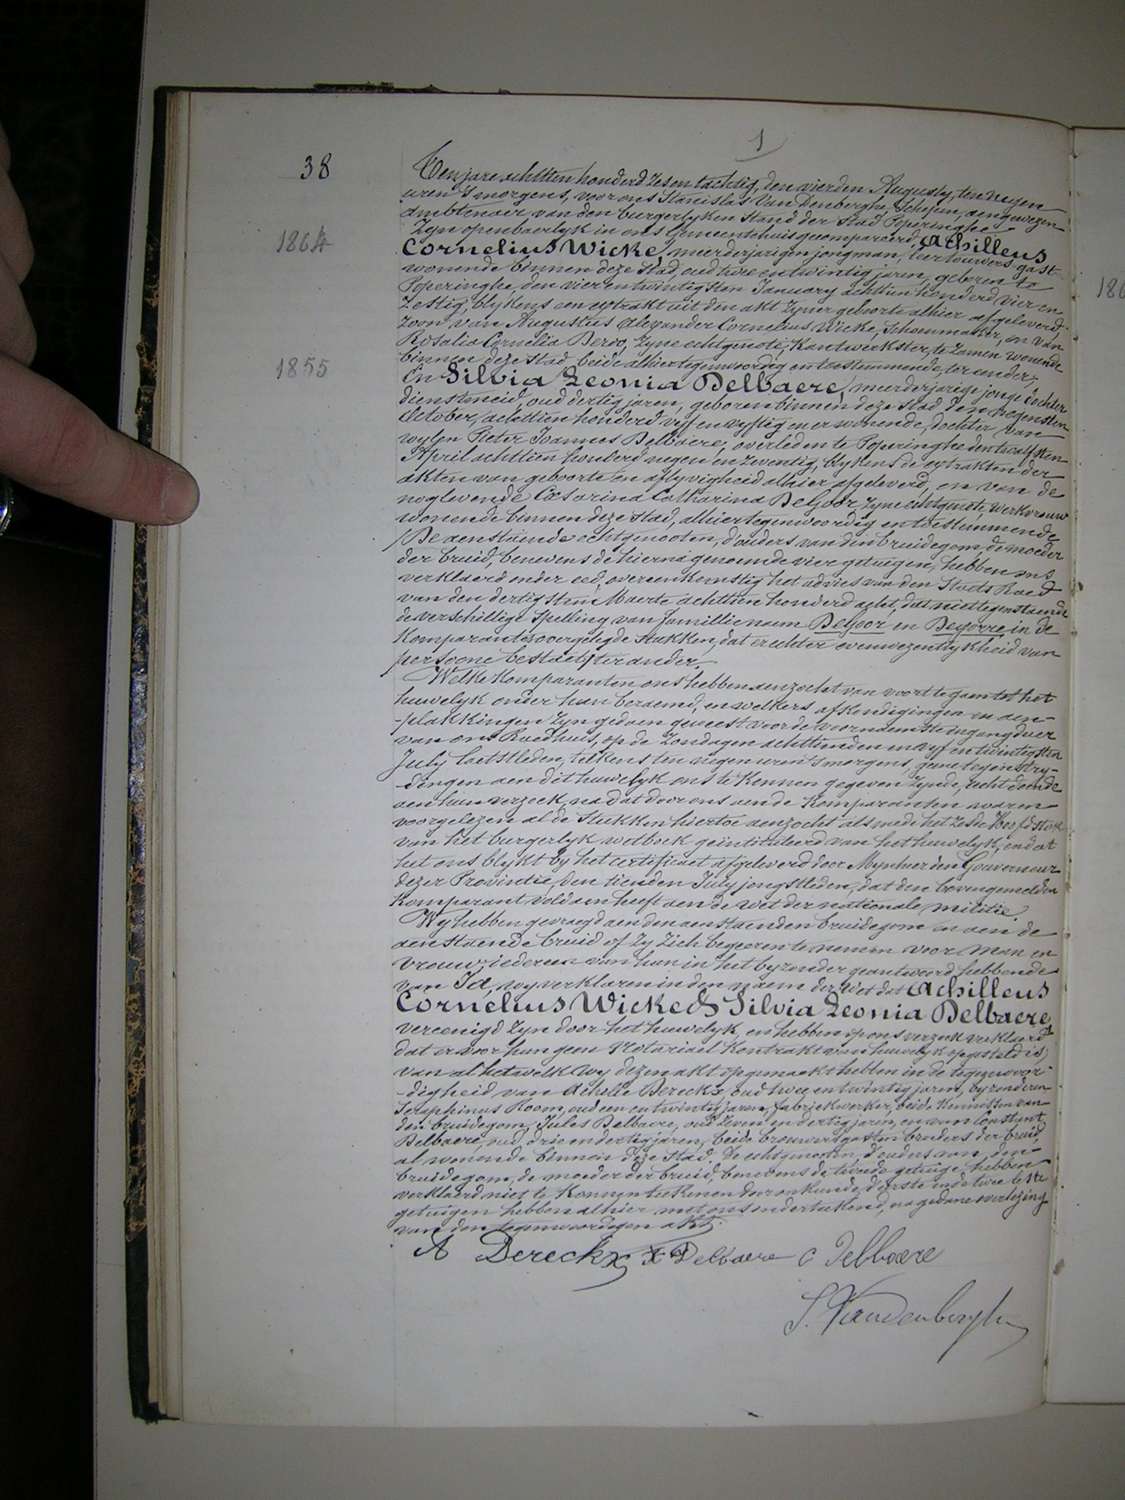 1
38
Ten jare achttien honderd zes en tachtig, den vierden Augusty, ten negen
uren 's morgens, voor ons Stanislas Van Denberghe, Schepen, aengewezen
ambtenaer van den burgerlyken Stand der Stad Poperinghe
1864
Zyn openbaerlyk in ons Gemeentehuis gecompareerd, Achilleus
Cornelius Wicke, meerderjarigen jongman,
wonende binnen deze stad, oud twee en twintig jaren, geboren te
Poperinghe, den vier en twintigsten January achttien honderd vier en
Zestig, blykens een extrakt uit den akt zyner geboorte alhier afgeleverd,
Zoon van Augustus Alexander Cornelius Wicke, schoenmaker, en van
Rosalia Cornelia Deroo, zyne echtgenote, Kantwerkster, te zamen wonende
binnen deze stad, beide alhier tegenwoordig en toestemmende, ter eender;
1855
En Silvia Leonia Delbaere, meerderjarige jonge dochter
dienstmeid, oud dertig jaren, geboren binnen deze stad den negensten
October, achttien honderd vyf en vyftig en er wonende, dochter van
wylen Pieter Joannes Delbaere, overleden te Poperinghe den twalfsten
April achttien honderd negen en zeventig, blykens de extrakten der
akten van geboorte en aflyvigheid alhier afgeleverd, en van de
noglevende Cesarina Catharina DeGoor, zyne echtgenote, werkvrouw
wonende binnen deze stad, alhier tegenwoordig en toestemmende
De aenstaende echtgenooten, d'ouders van den bruidegom, de moeder
der bruid, benevens de hierna genoemde vier getuigen, hebben ons
verklaerd onder eed, overeenkomstig het advies van den Staets Raed
van den dertigsten Maerte achttien honderd acht, dat niettegenstaende
de verschillige spelling van familienaem DeGoor en Degorre in de
Komparants overgelegde stukken, dat er echter evenwezentlykheid van
persoone bestaet, ter ander.
Welke Komparanten ons hebben aenzocht van voort te gaen tot het
huwelyk onder hun beraemd, en welkers afkondigingen en aen-
-plakkingen zyn gedaen geweest voor de voornaemste ingangdeur
van ons Raedhuis, op de Zondagen achttienden en vyf en twintigsten
July laetstleden, telkens ten negen uren 's morgens, geene tegenstry-
-dingen aen dit huwelyk ons te kennen gegeven zynde, recht doende
aen hun verzoek, na dat door ons aen de Komparanten waren
voorgelezen al de stukken hiertoe aenzocht alsmede het zesde Hoofdstuk
van het burgerlyk wetboek geïntituleerd van het huwelyk, en dat
het ons blykt by het certificaet afgeleverd door Mynheer den Gouverneur
dezer Provintie, den tienden July jongstleden, dat den bovengemelden
Komparant voldaen heeft aen de wet der nationale militie.
Wy hebben gevraegd aen den aenstaenden bruidegom en aen de
aenstaende bruid of zy zich begeeren te nemen voor man en
vrouw; iedereen van hun in het byzonder geantwoord hebbende
van Ja, wy verklaren in den naem der Wet dat Achilleus
Cornelius Wicke & Silvia Leonia Delbaere
vereenigd zyn door het huwelyk, en hebben op ons verzoek verklaerd
dat er voor hun geen Notariael Kontrakt van huwelyk opgesteld is;
van al hetwelk wy dezen akt opgemaekt hebben in de tegenwoor-
-digheid van Achille Dereckx, oud twee en twintig jaren, byzonderen
Seraphinus Room, oud een en twintig jaren, fabriekwerker, beide Kennissen van
den bruidegom, Jules Delbaere, oud zeven en dertig jaren, en van Constant
Delbaere, oud drie en dertig jaren, beide brouwersgasten broeders der bruid,
al wonende binnen deze stad. De echtgenooten, d'ouders van den
bruidegom, de moeder der bruid, benevens de tweede getuige hebben
verklaerd niet te Konnen teekenen door onkunde, d'eerste en de twee leste
getuigen hebben alhier met ons onderteekend, na gedane voorlezing
van den tegenwoordigen akt.
A Dereckx Delbaere C Delbaere
S. Vandenberghe